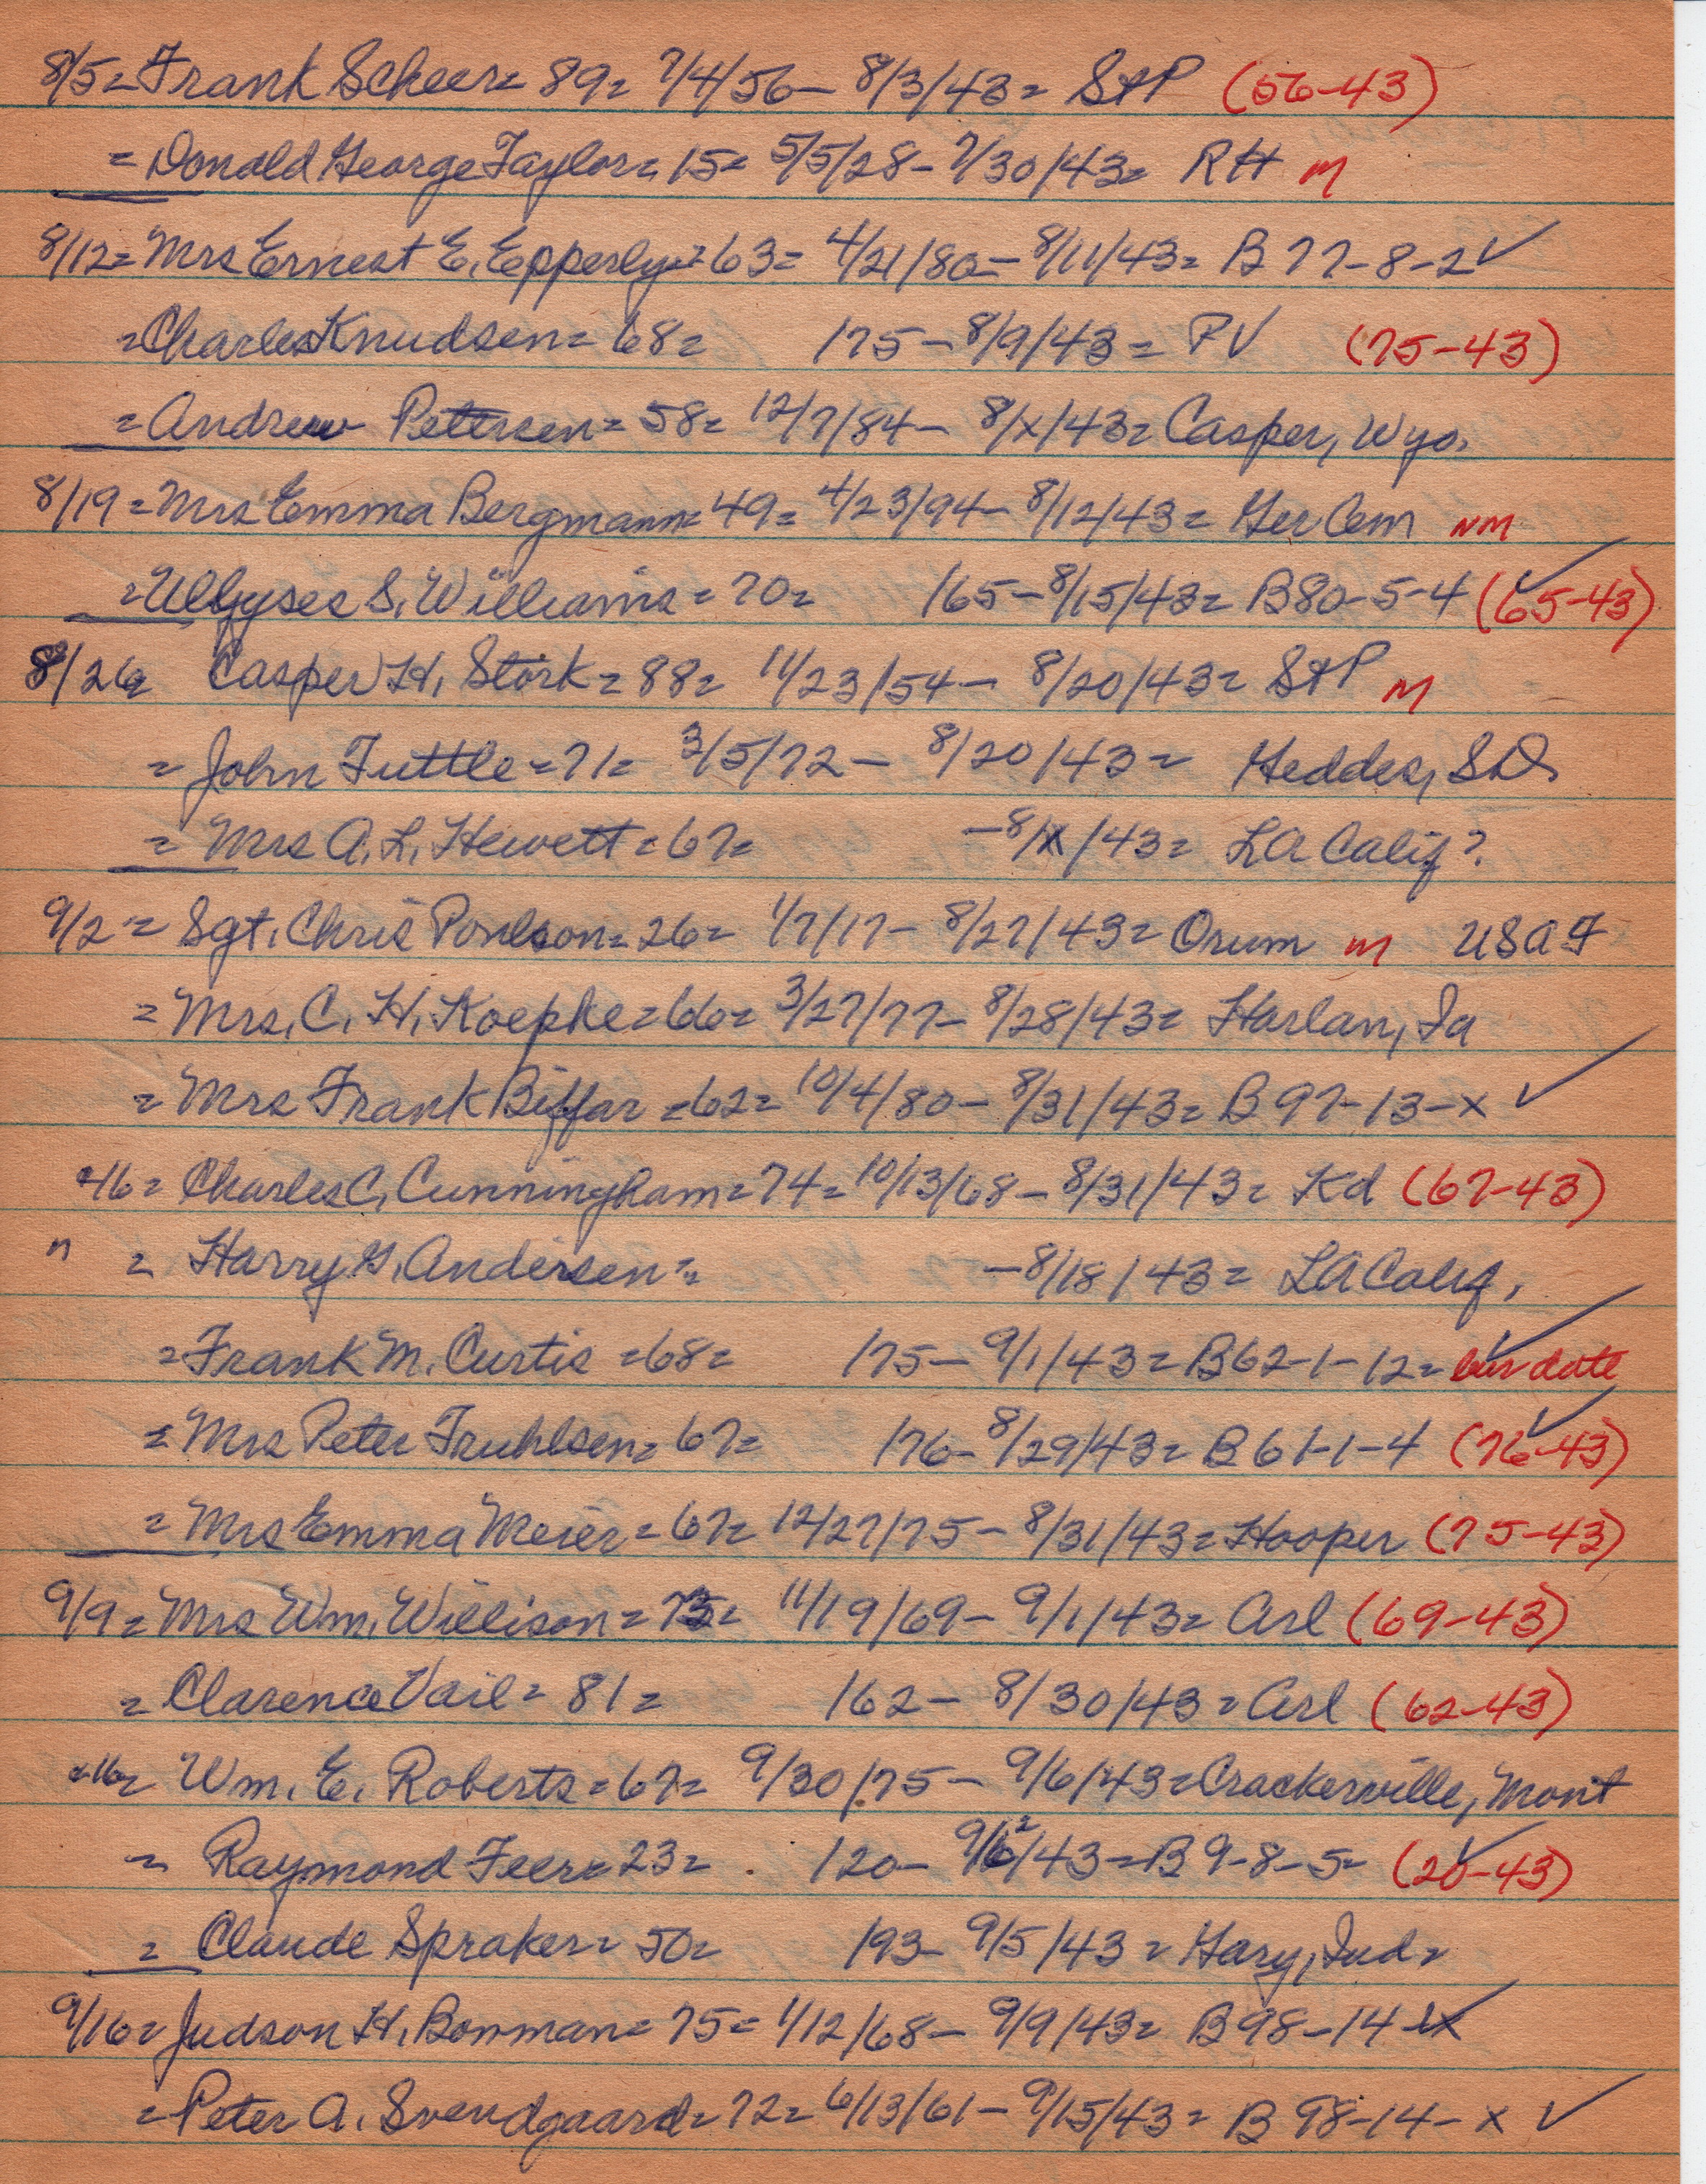 8/5= Frank Scheer= 89= 7/4/56- 8/3/43= StP (56-43)
= Donald George Taylor= 15= 5/5/28- 7/30/43= RH M
8/12= Mrs Ernest E. Epperly= 63= 4/21/80- 8/11/43= B 77-8-2 ✓
= Charles Knudsen= 68= 175- 8/9/43= PV (75-43)
= Andrew Petersen= 58= 12/7/84- 8/x/43= Casper, Wyo.
8/19= Mrs Emma Bergmann= 49= 4/23/94- 8/12/43= Ger Cem NM
= Ullyses S. Williams= 70= 165- 8/15/43= B80-5-4 ✓ (65-43)
8/26= Casper H. Stork= 88= 11/23/54- 8/20/43= StP M
= John Tuttle= 71= 3/5/72- 8/20/43= Geddes, SD.
= Mrs A. L. Hewett= 67= -8/x/43= LA Calif?
9/2= Sgt. Chris Poulson= 26= 1/7/17- 8/27/43= Orum M USAF
= Mrs. C. H. Koepke= 66= 3/27/77- 8/28/43= Harlan, Ia
= Mrs Frank Biffar= 62= 10/4/80- 8/31/43= B 97-13-x ✓
=16= Charles C. Cunningham= 74= 10/13/68- 8/31/43= Kd (67-43)
" = Harry G. Andersen= -8/18/43= LA Calif.
= Frank M. Curtis= 68= 175- 9/1/43= B62-1-12= ✓ bur date
= Mrs Peter Fruhlsen= 67= 176- 8/29/43= B 61-1-4 ✓ (76-43)
= Mrs Emma Meier= 67= 12/27/75- 8/31/43= Hooper (75-43)
9/9= Mrs Wm. Willison= 73= 11/19/69- 9/1/43= Arl (69-43)
= Clarence Vail= 81= 162- 8/30/43= Arl (62-43)
=16= Wm. E. Roberts= 67= 9/30/75- 9/6/43= Crackerville, Mont
= Raymond Feer= 23= 120- 9/2/43= B 9-8-5= ✓ (20-43)
= Claude Spraker= 50= 193- 9/5/43= Gary, Ind=
9/16= Judson H. Bowman= 75= 1/12/68- 9/9/43= B 98-14-x ✓
= Peter A. Svendgaard= 72= 6/13/61- 9/15/43= B 98-14-x ✓